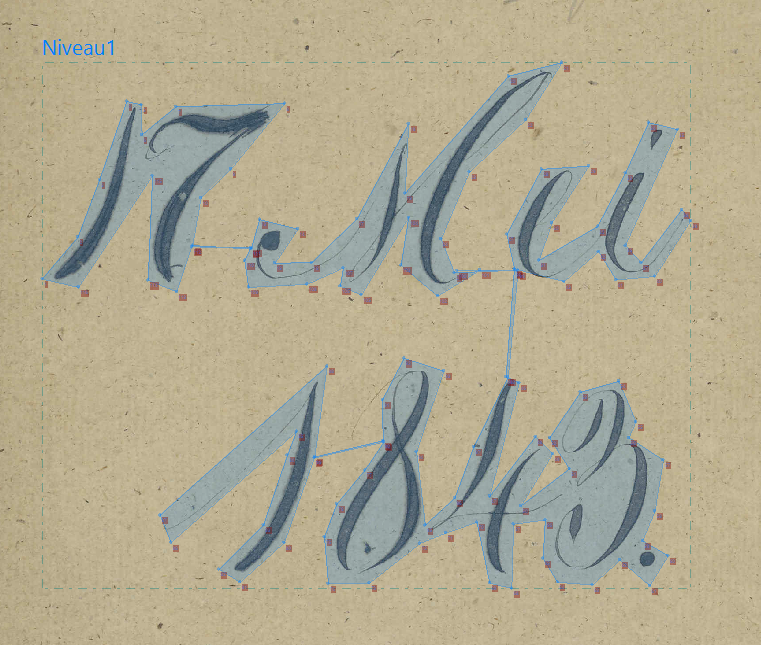 Niveau1
17 Mai
1843.